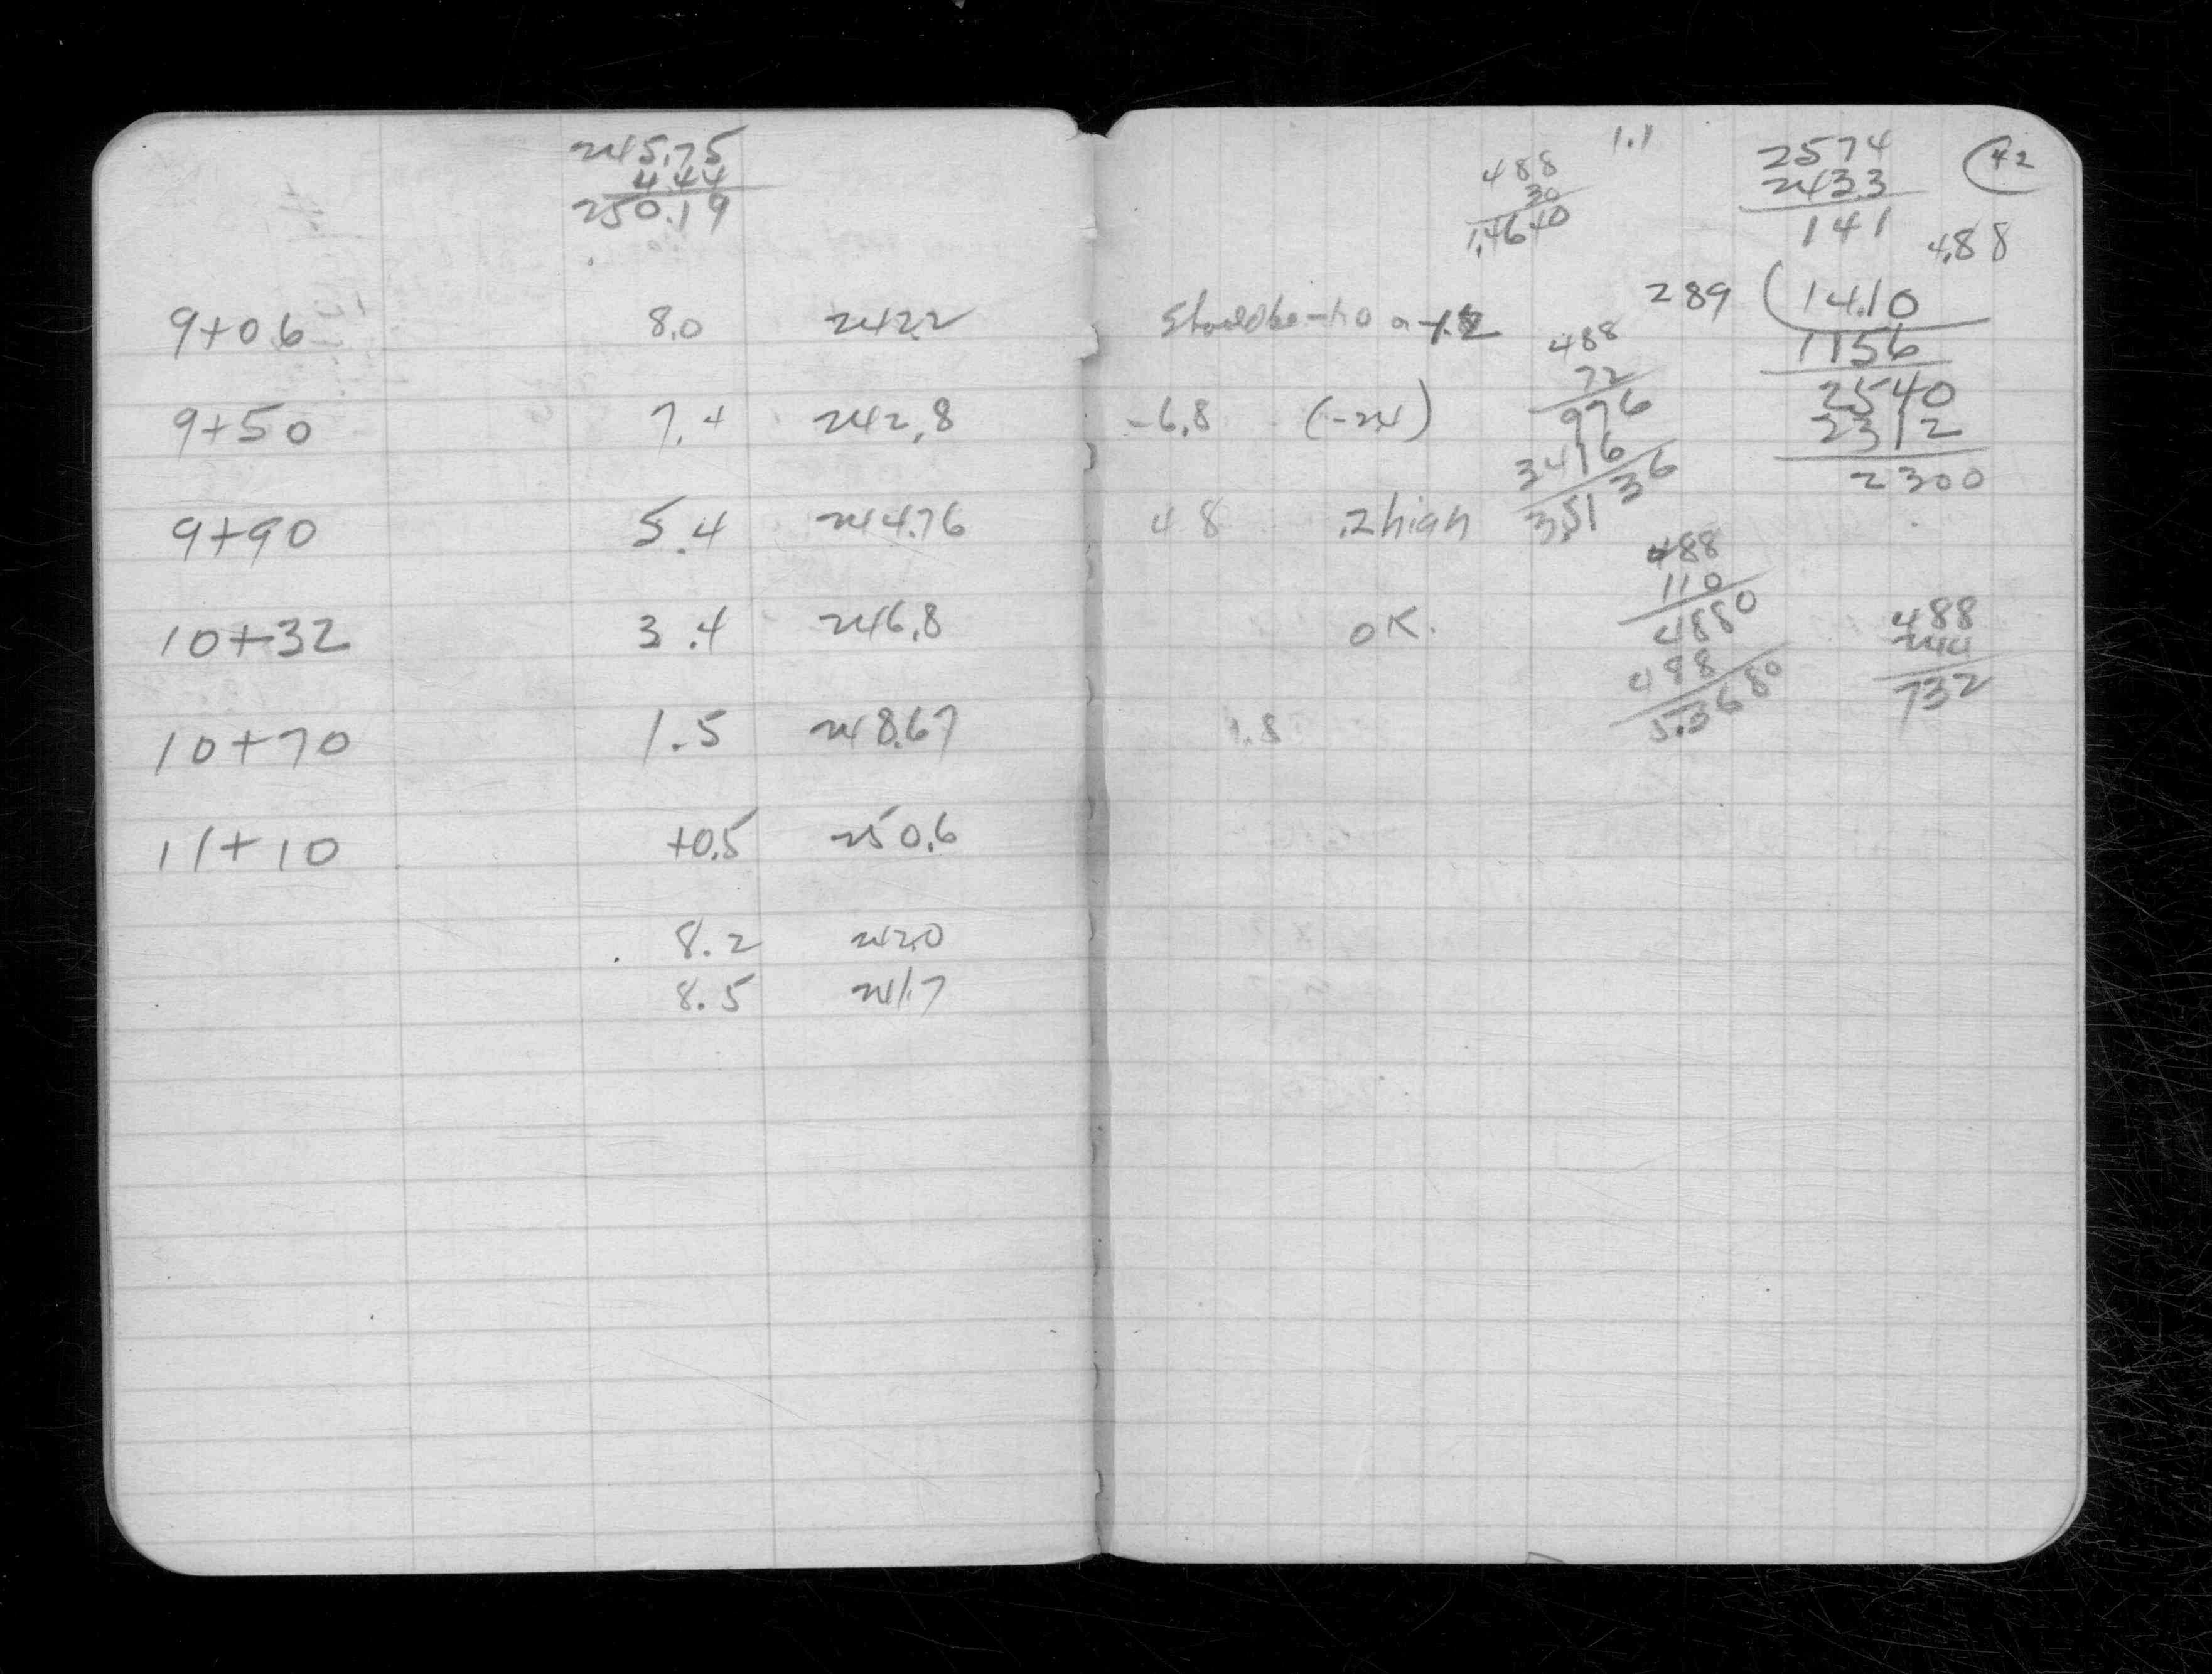 245.75
4.44
250.19
9+06 8.0 242.2
9+50 7.4 242.8
9+90 5.4 244.76
10+32 3.4 246.8
10+70 1.5 248.67
11+10 +0.5 250.6
8.2 242.0
8.5 241.7
1.1
42
488
30
1.4640
2574
2433
141
4.88
289 14.10
1156
2540
2312
2300
Should be -1.0
488
72
976
3416
3.5136
-6.8 (-2.4)
4 8 .2 high
OK.
1.8
488
110
4880
488
5.3680
488
244
732